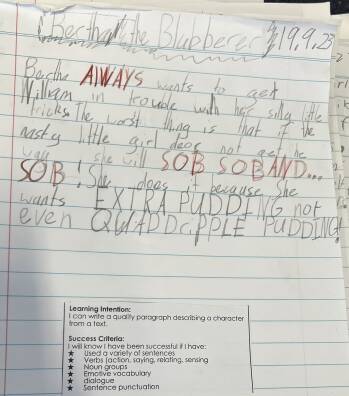 Bertha the Blubberer 19.9.23
Bertha AlWAYS wants to get
William in trouble with her silly little
tricks. The worst thing is that if the
nasty little girl does not get he
way she will SOB SOB AND...
SOB! She does it because She
wants EXTRA PUDDING not
even QUADDRIPPLE PUDDING!
Learning Intention:
I can write a quality paragraph describing a character
from a text.
Success Criteria:
I will know I have been successful if I have:
★ Used a variety of sentences
★ Verbs (action, saying, relating, sensing
★ Noun groups
★ Emotive vocabulary
★ dialogue
★ Sentence punctuation